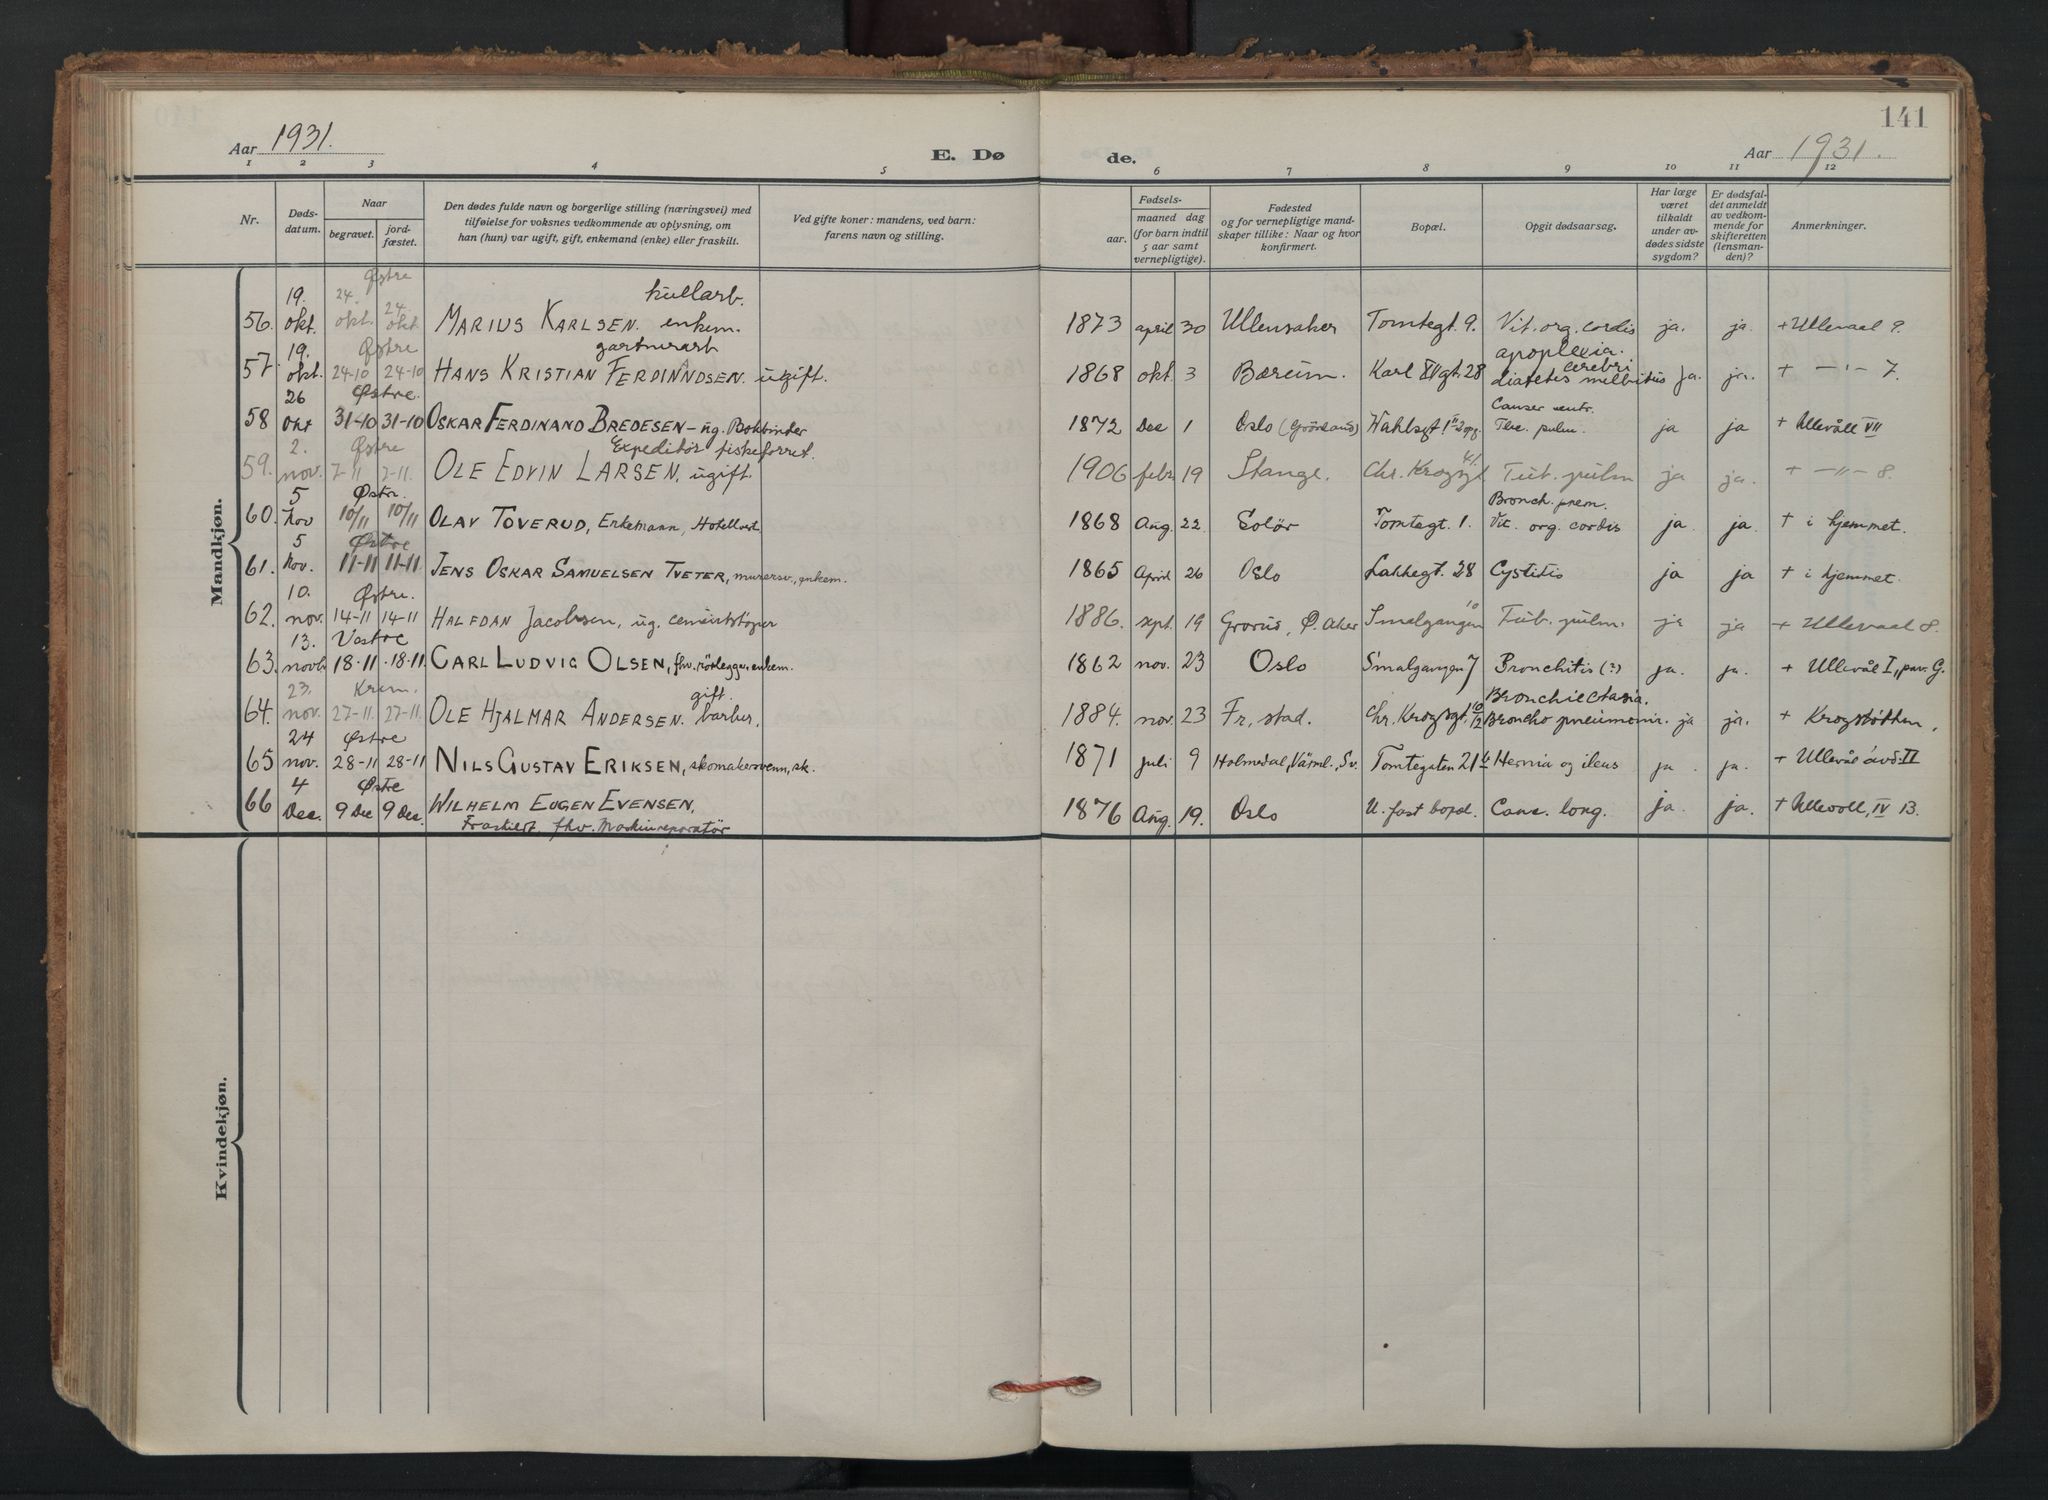 141
Aar 1931.
E. Dø
de.
Aar 1931.
1 2 3 4 5 6 7 8 9 10 11 12
Nr.
Døds-
datum.
Naar
begravet.
jord-
fæstet.
Den dødes fulde navn og borgerlige stilling (næringsvei) med
tilføielse for voksnes vedkommende av oplysning, om
han (hun) var ugift, gift, enkemand (enke) eller fraskilt.
Ved gifte koner: mandens, ved barn:
farens navn og stilling.
Fødsels-
aar.
maaned dag
(for barn indtil
5 aar samt
vernepligtige).
Fødested
og for vernepligtige mand-
skaper tillike: Naar og hvor
konfirmert.
Bopæl.
Opgit dødsaarsag.
Har læge
været
tilkaldt
under av-
dødes sidste
sygdom?
Er dødsfal-
det anmeldt
av vedkom-
mende for
skifteretten
(lensman-
den)?
Anmerkninger.
Mandkjøn.
Østre
19. 24. 24. kullarb.
56. okt. okt. okt. MARIUS KARLSEN. enkem. 1873 april 30 Ullensaker Tomtegt. 9. Vit. org. cordis ja. ja. + Ullevaal 9.
19. Østre gartnerarb apoplexia cerebri
57. okt. 24-10 24-10 HANS KRISTIAN FERDINANDSEN. ugift. 1868 okt. 3 Bærum. Karl XII gt. 28 diabetes mellitus ja. ja. + —"— 7.
26 Østre. Cancer ventr.
58 okt 31-10 31-10 OSKAR FERDINAND BREDESEN - ug. Bokbinder 1872 Dec 1 Oslo (Grönland) Wahlsgt 1 Tbc. pulm. ja ja + Ullevåll VII
2. Østre Expeditör fiskeforret. 41
59. nov. 7-11 7-11. OLE EDVIN LARSEN, ugift. 1906 febr 19 Stange. Chr. Krogsgt Tub. pulm ja ja. + —"— 8.
5 Østre. Bronch. pnem.
60. Nov 10/11 10/11 OLAV TOVERUD, Enkemann, Hotellvert 1868 Aug. 22 Solör Tomtegt. 1. Vit. org. cordis ja. ja. + i hjemmet.
5 Østre
61. Nov. 11-11 11-11. JENS OSKAR SAMUELSEN TVETER, murersv., enkem. 1865 April 26 Oslo Lakkegt. 28 Cystitis ja ja + i hjemmet.
10. Østre. 10
62. nov. 14-11 14-11 HALFDAN Jacobsen, ug. cementstøper 1886. sept. 19 Grorud, Ø. Aker Smalgangen Tub. pulm. ja ja + Ullevaal 8.
13. Vestre
63. novb 18-11 18-11. CARL LUDVIG OLSEN, fhv. rörlegger, enkem. 1862 nov. 23 Oslo Smalgangen 7 Bronchitis (?) ja. ja. + Ullevål I, pav. G.
23. Krem. gift. Bronchiectasia.
64. nov. 27-11. 27-11. OLE HJALMAR ANDERSEN. barber. 1884. nov. 23 Fr. stad. Chr. Krogsgt. 10/12 Broncho pneumonir. ja ja. + Krogstötten.
24 Østre
65 nov. 28-11 28-11 NILS GUSTAV ERIKSEN, skomakersvenn, sk. 1871 juli 9 Holmedal, Värml., Sv. Tomtegaten 21 b Hernia og ileus ja. ja. + Ullevål avd. II
4 Østre
66 Dec. 9 Dec 9 Dec. WILHELM EUGEN EVENSEN, 1876 Aug. 19. Oslo U. fast bopæl. Canc. long. ja. ja. + Ullevoll, IV 13.
Fraskilt fhv. Maskinreparatör
Kvindekjøn.